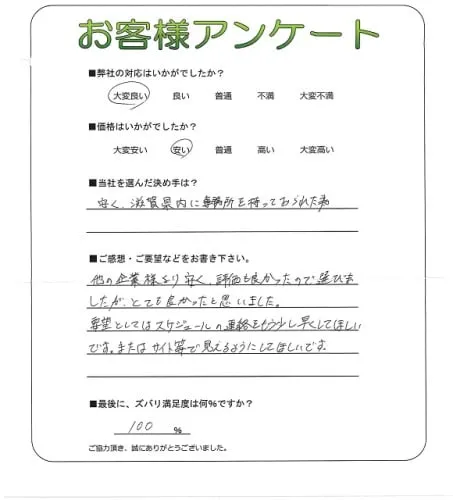 お客様アンケート
■弊社の対応はいかがでしたか？
大変良い 良い 普通 不満 大変不満
■価格はいかがでしたか？
大変安い 安い 普通 高い 大変高い
■当社を選んだ決め手は？
安く、滋賀県内に事務所を持っておられた為
■ご感想・ご要望などをお書き下さい。
他の企業様より安く、評価も良かったので選びま
したが、とても良かったと思いました。
要望としてはスケジュールの連絡をもう少し早くしてほしい
です。またはサイト等で見えるようにしてほしいです
■最後に、ズバリ満足度は何％ですか？
100 ％
ご協力頂き、誠にありがとうございました。